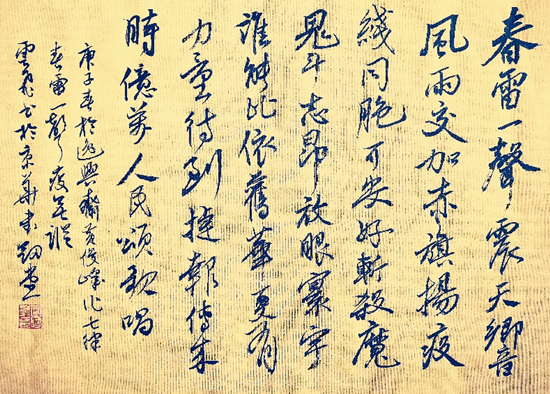 春雷一聲震天響
風雨交加赤旗揚疫
綫同胞可安好斬殺魔
鬼斗志昂放眼寰宇
誰能比依舊華夏有
力量待到捷報傳來
時億萬人民頌歌唱
庚子春於逸興齋黄俊峰作七律
春雷一聲疫無蹤
雲飛书於京華堂